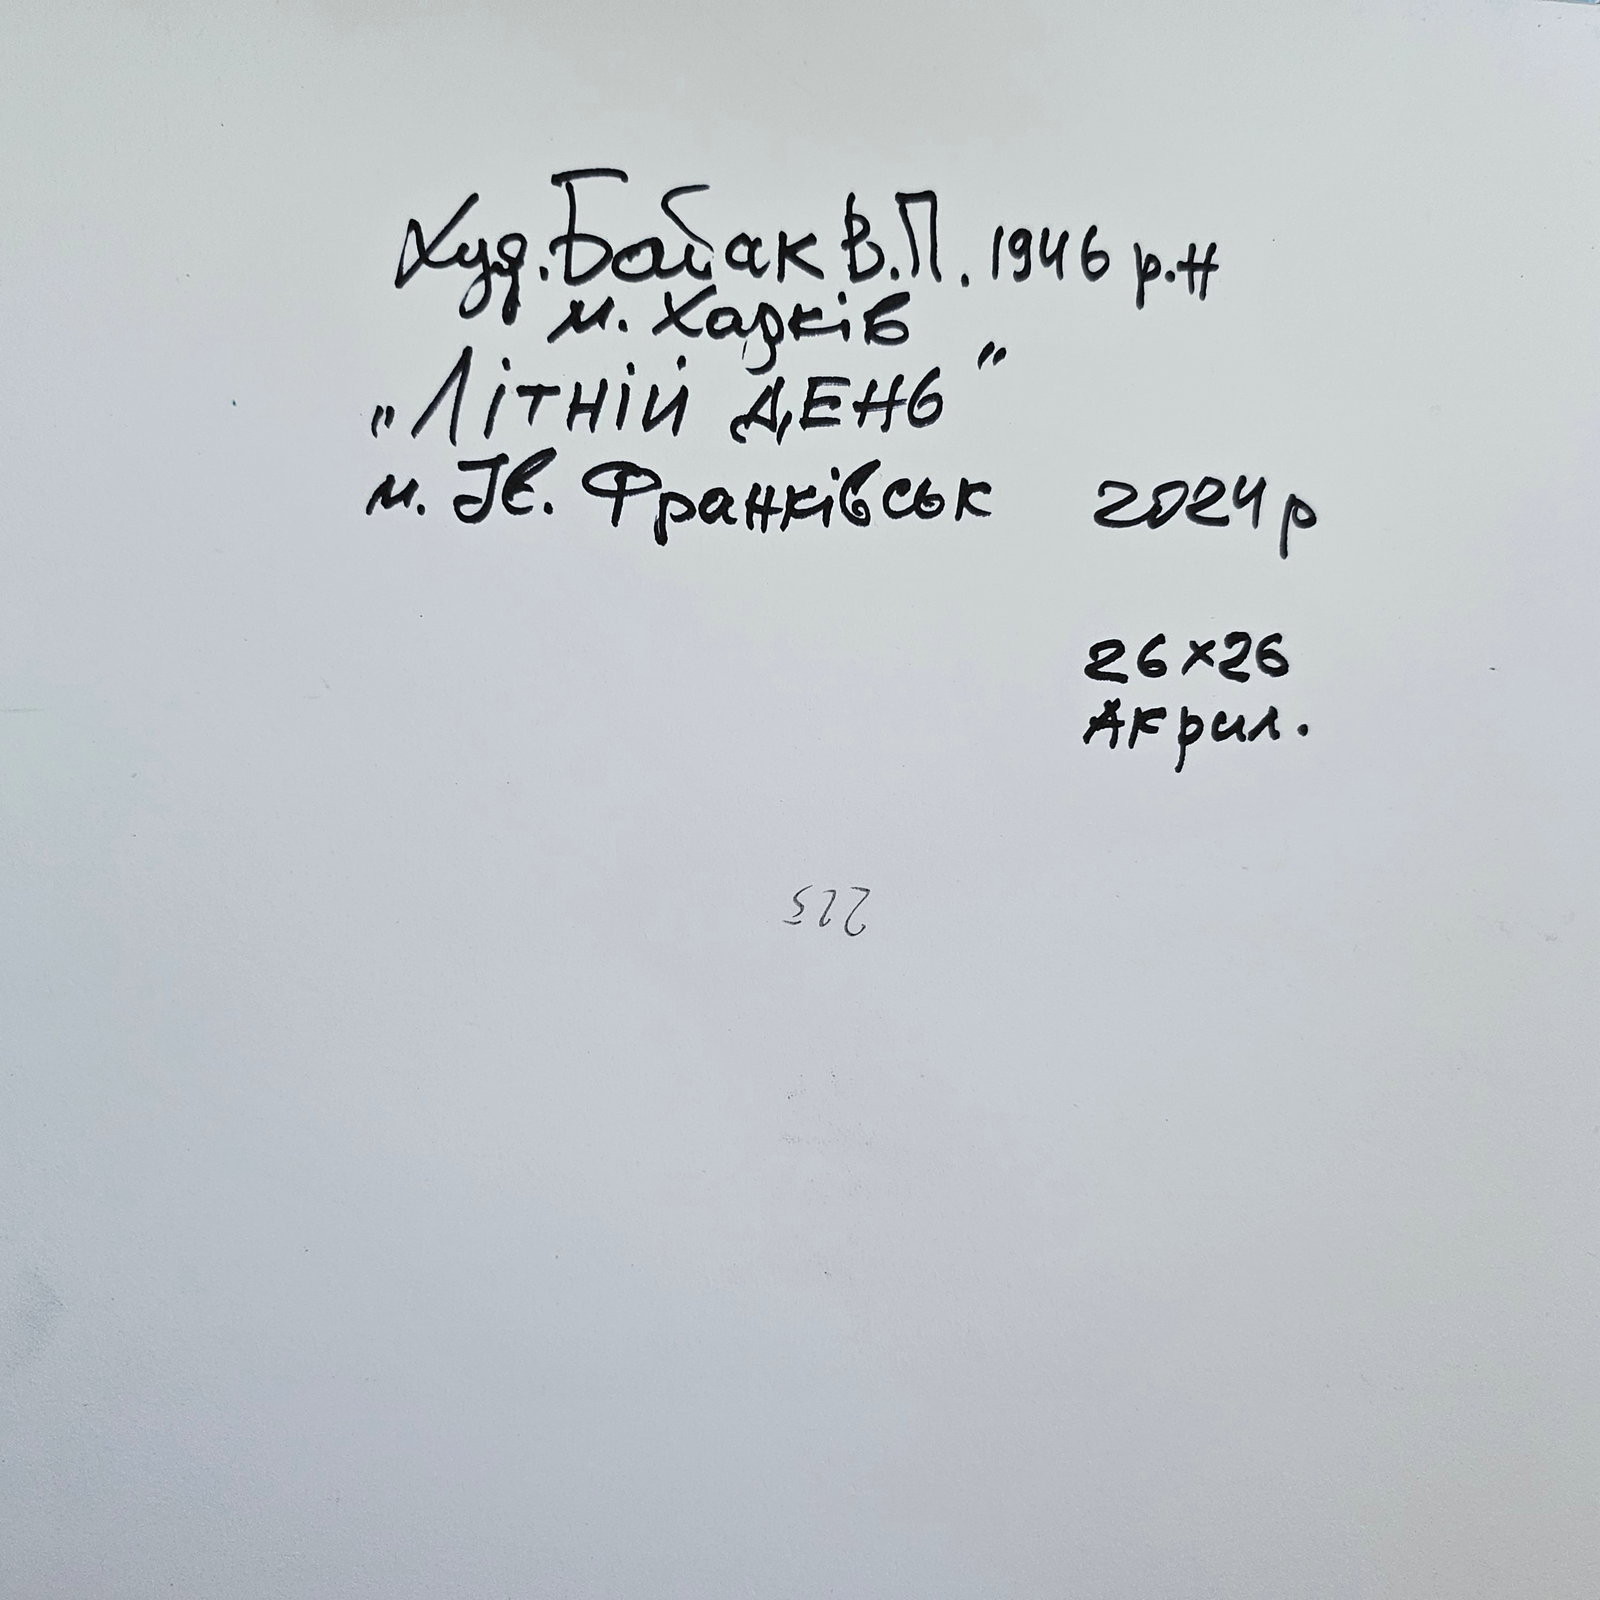 Худ. Бабак В.П. 1946 р.н
м. Харків
„Літній ДЕНЬ"
м. Ів. Франківськ 2024 р
26×26
Акрил.
223